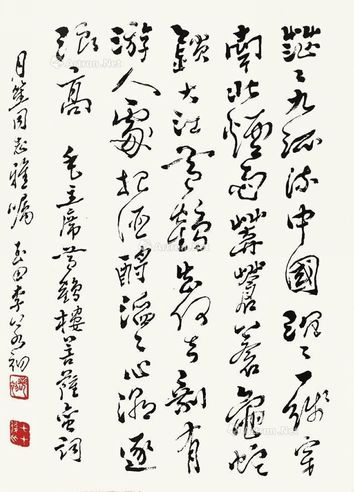 茫々九派流中國沉々一線穿
南北煙雨莽蒼蒼龜蛇
鎖大江黃鶴知何去剩有
游人處把酒酹滔々心潮逐
浪高 毛主席黃鶴樓菩薩蠻詞
月笙同志雅囑 玉田李